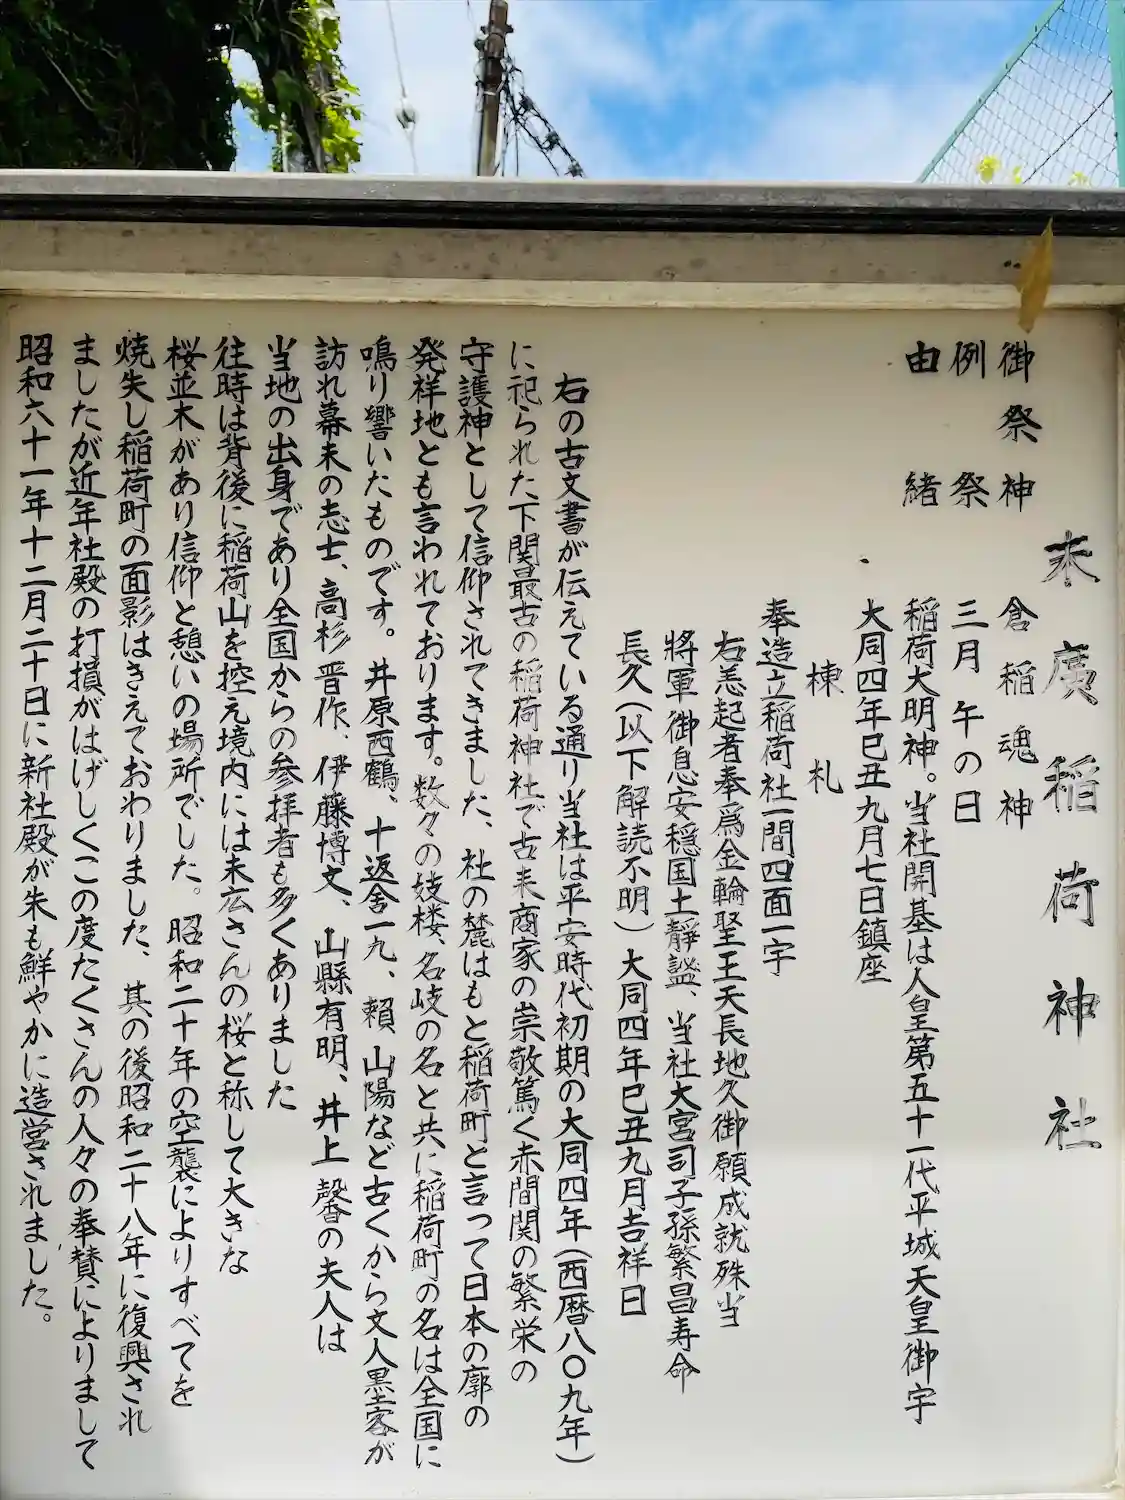 末廣稲荷神社
御祭神 倉稲魂神
例祭 三月午の日
由緒 稲荷大明神。当社開基は人皇第五十一代平城天皇御宇
大同四年巳丑九月七日鎮座
棟札
奉造立稲荷社一間四面一宇
右恙起者奉為金輪聖王天長地久御願成就殊当
將軍御息安穏国土靜謐、当社大宮司子孫繁昌寿命
長久(以下解読不明)大同四年巳丑九月吉祥日
右の古文書が伝えている通り当社は平安時代初期の大同四年(西暦八〇九年)
に祀られた下関最古の稲荷神社で古来商家の崇敬篤く赤間関の繁栄の
守護神として信仰されてきました、社の麓はもと稲荷町と言って日本の廓の
発祥地とも言われております。数々の妓楼、名岐の名と共に稲荷町の名は全国に
鳴り響いたものです。井原西鶴、十返舎一九、頼山陽など古くから文人墨客が
訪れ幕末の志士、高杉晋作、伊藤博文、山縣有明、井上馨の夫人は
当地の出身であり全国からの参拝者も多くありました
往時は背後に稲荷山を控え境内には末広さんの桜と称して大きな
桜並木があり信仰と憩いの場所でした。昭和二十年の空襲によりすべてを
焼失し稲荷町の面影はきえておわりました、其の後昭和二十八年に復興され
ましたが近年社殿の打損がはげしくこの度たくさんの人々の奉賛によりまして
昭和六十一年十二月二十日に新社殿が朱も鮮やかに造営されました。